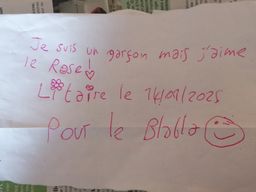 Je suis un garçon mais j'aime
le Rose!
Litaire le 14/09/2025
Pour le Blabla